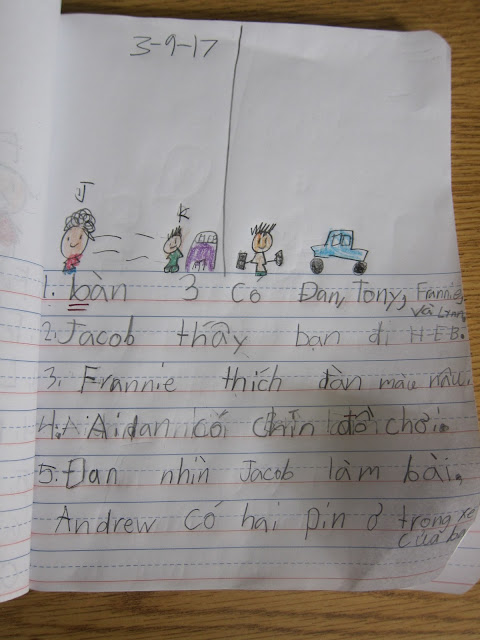 3-9-17
J
K
1. bàn 3 có Đan, Tony, Frannie,
và
2. Jacob thấy bạn đi H-E-B.
3. Frannie thích đàn màu nâu.
4. Aidan có chín đồ chơi.
5. Đan nhìn Jacob làm bài.
Andrew có hai pin ở trong xe
của ba